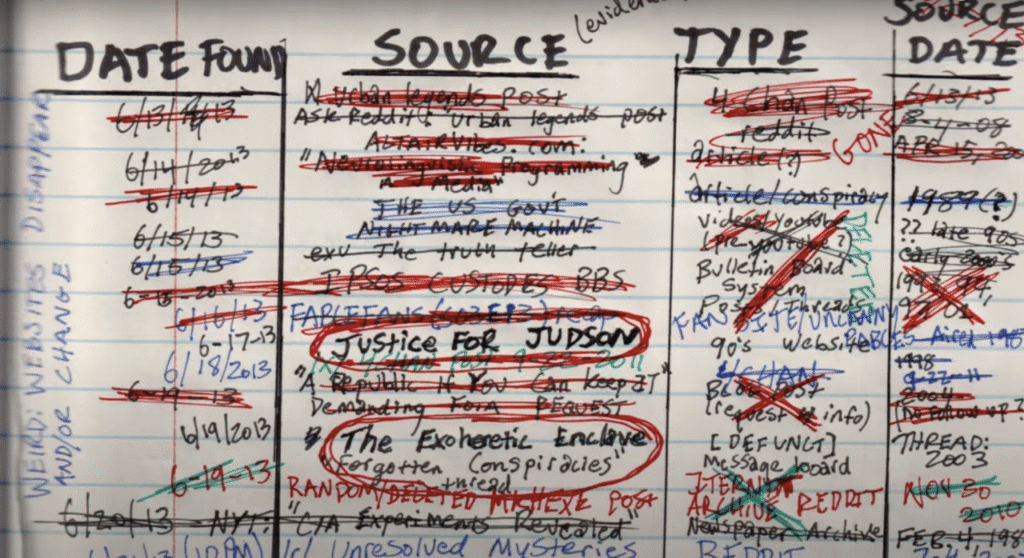 (evidence
DATE FOUND SOURCE TYPE SOURCE DATE
WEIRD: WEBSITES DISAPPEAR
AND/OR CHANGE
6/13/13 Urban legends post 4 Chan Post 6/13/13
Ask Reddit: Urban legends post reddit
GONE
ALTAIRVIBES.COM:
6/14/2013 "Neurolinguistic Programming article(?) APR 15, 20
Media"
6/14/13 THE US GOV'T article/conspiracy 1989(?)
6/15/13 NIGHTMARE MACHINE Videos/youtube ?? late 90s
exu The truth teller (pre-youtube?) early 2000s
6/15/13 DELETED
IPSOS CUSTODES BBS Bulletin Board
System
Posts/Threads
6/16/13 FABLEFANS FAN SITE/UNCANNY FABLES Aired 198
6-17-13 JUSTICE FOR JUDSON 90's website 1998
6/18/2013 4CHAN Post 9-22-2011 4/CHAN 9-22-11
6-19-13 "A Republic if You Can Keep It" Blog Post 2004
Demanding FOIA REQUEST (request info) (Do follow up?
6/19/2013 The Exoheretic Enclave [DEFUNCT] THREAD:
"Forgotten Conspiracies" Message board 2003
thread
6-19-13 RANDOM/DELETED POST ARCHIVE REDDIT NOV 30
2010
6/20/13 NYT: "CIA Experiments Revealed" Newspaper Archive FEB. 4, 198
(10PM) r/ Unresolved Mysteries REDDIT